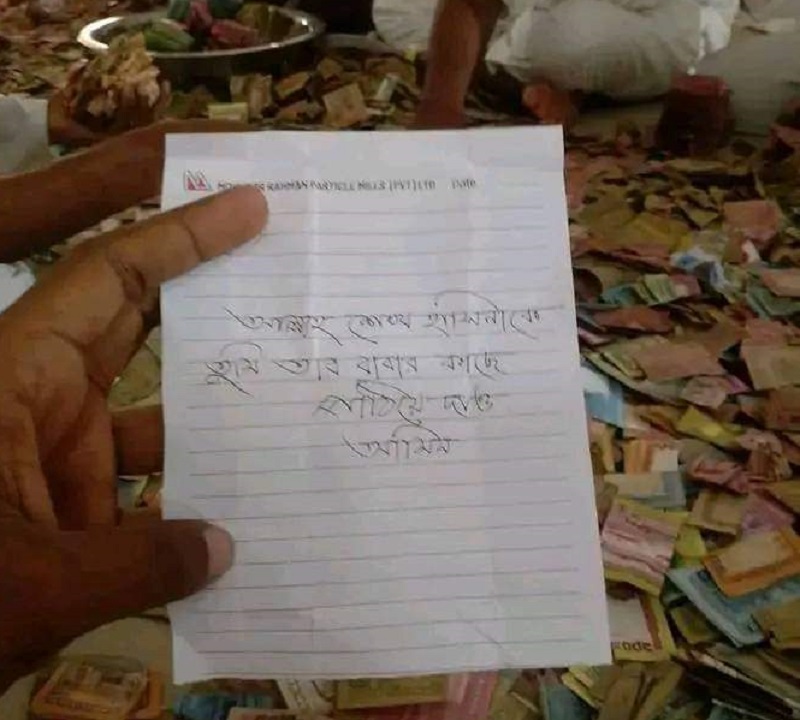 RAHMAN PARTICLE MILLS (PVT) LTD Date
আল্লাহ শেখ হাসিনাকে
তুমি তার বাবার কাছে
পাঠিয়ে দাও
আমিন